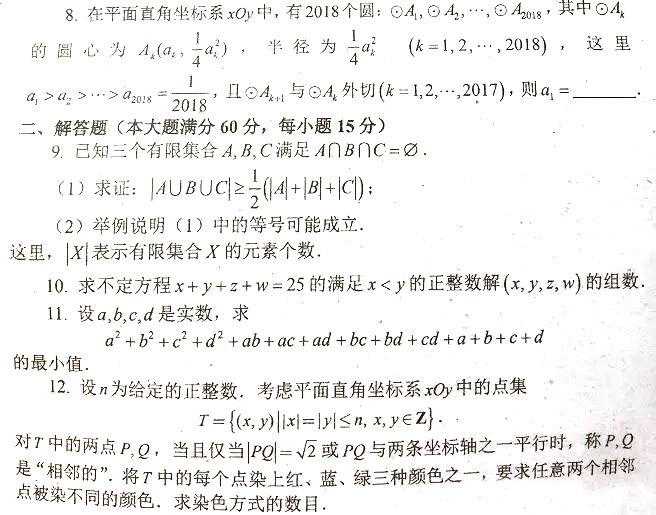 8. 在平面直角坐标系 xOy 中，有 2018 个圆：⊙A₁, ⊙A₂, ⋯, ⊙A₂₀₁₈，其中⊙Aₖ
的圆心为 Aₖ(aₖ, 1/4 aₖ²)，半径为 1/4 aₖ² (k=1,2,⋯,2018)，这里
a₁>a₂>⋯>a₂₀₁₈=1/2018，且⊙Aₖ₊₁与⊙Aₖ外切(k=1,2,⋯,2017)，则a₁=______.
二、解答题（本大题满分 60 分，每小题 15 分）
9. 已知三个有限集合 A,B,C 满足 A∩B∩C=∅.
（1）求证：|A∪B∪C|≥1/2(|A|+|B|+|C|)；
（2）举例说明（1）中的等号可能成立.
这里，|X|表示有限集合 X 的元素个数.
10. 求不定方程 x+y+z+w=25 的满足 x<y 的正整数解(x,y,z,w)的组数.
11. 设a,b,c,d 是实数，求
a²+b²+c²+d²+ab+ac+ad+bc+bd+cd+a+b+c+d
的最小值.
12. 设n为给定的正整数. 考虑平面直角坐标系 xOy 中的点集
T={(x,y)||x|=|y|≤n, x,y∈Z}.
对T中的两点P,Q，当且仅当|PQ|=√2 或 PQ 与两条坐标轴之一平行时，称P,Q
是“相邻的”. 将T中的每个点染上红、蓝、绿三种颜色之一，要求任意两个相邻
点被染不同的颜色. 求染色方式的数目.